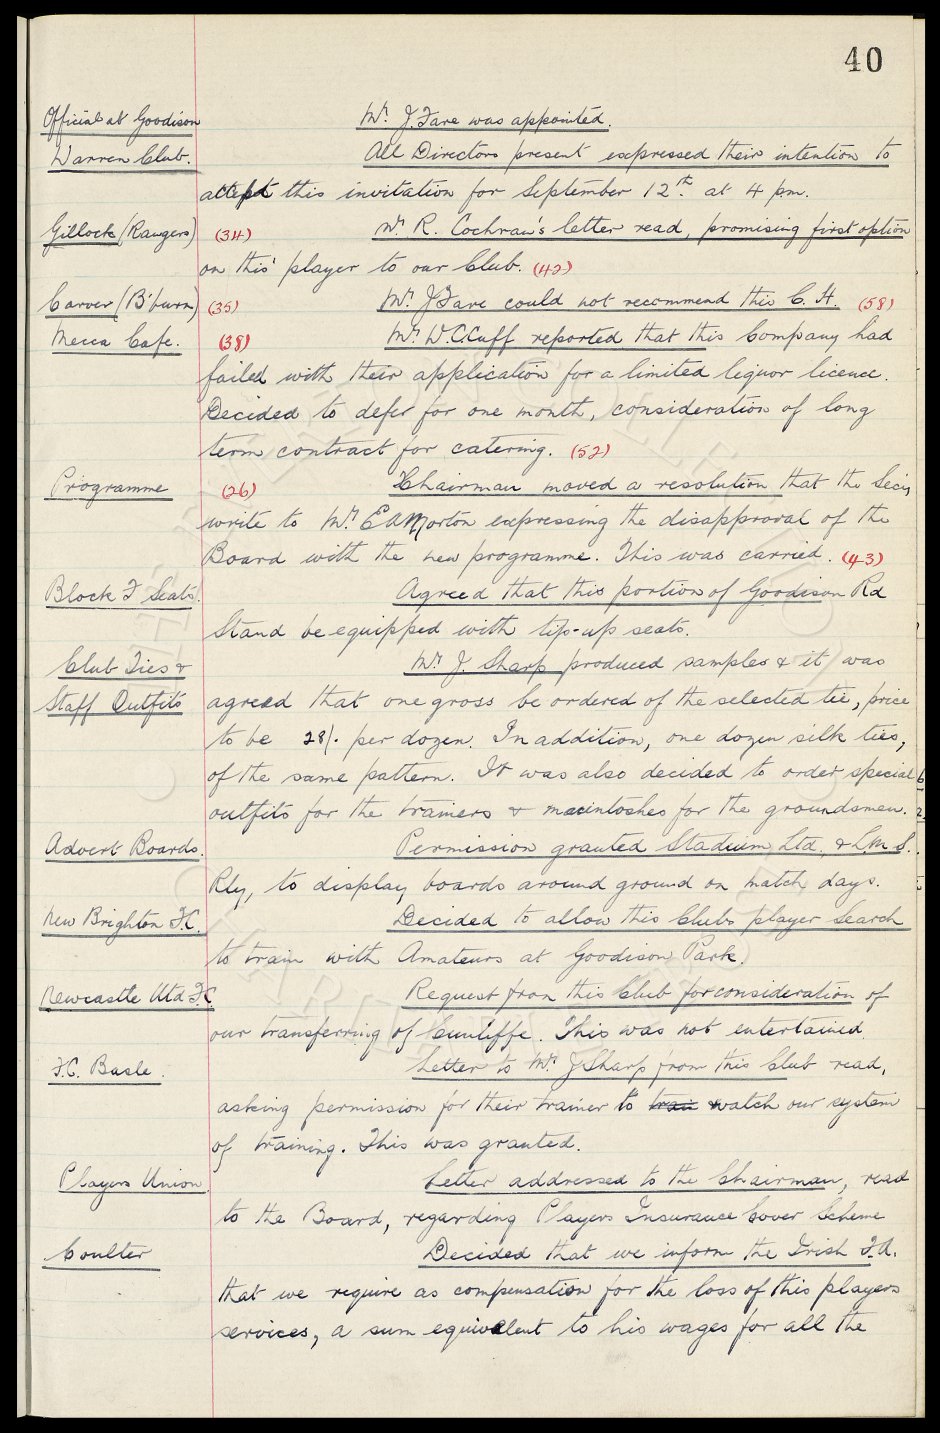 40
Official at Goodison Mr. J. Fare was appointed.
Warren Club. All Directors present expressed their intention to
accept this invitation for September 12th at 4 p.m.
Gillock (Rangers) (34) Mr R. Cochran's letter read, promising first option
on this player to our Club. (42)
Carver (B'burn) (35) Mr. J Fare could not recommend this C.H. (58)
Mecca Cafe. (38) Mr W.C. Cuff reported that this Company had
failed with their application for a limited liquor licence.
Decided to defer for one month, consideration of long
term contract for catering. (52)
Programme (26) Chairman moved a resolution that the Secy
write to Mr. E A Morton expressing the disapproval of the
Board with the new programme. This was carried. (43)
Block F Seats. Agreed that this portion of Goodison Rd
Stand be equipped with tip-up seats.
Club Ties & Mr J. Sharp produced samples & it was
Staff Outfits agreed that one gross be ordered of the selected tie, price
to be 28/- per dozen. In addition, one dozen silk ties,
of the same pattern. It was also decided to order special
outfits for the trainers & macintoshes for the groundsmen.
Advert Boards. Permission granted Stadium Ltd. & L.M.S.
Rly, to display boards around ground on match days.
New Brighton F.C. Decided to allow this Clubs player Search
to train with Amateurs at Goodison Park.
Newcastle Utd F.C. Request from this Club for consideration of
our transferring of Cunliffe. This was not entertained
F.C. Basle. Letter to Mr. J Sharp from this Club read,
asking permission for their trainer to train watch our system
of training. This was granted.
Players Union. Letter addressed to the Chairman, read
to the Board, regarding Players Insurance Cover Scheme
Coulter Decided that we inform the Irish F.A.
that we require as compensation for the loss of this players
services, a sum equivalent to his wages for all the